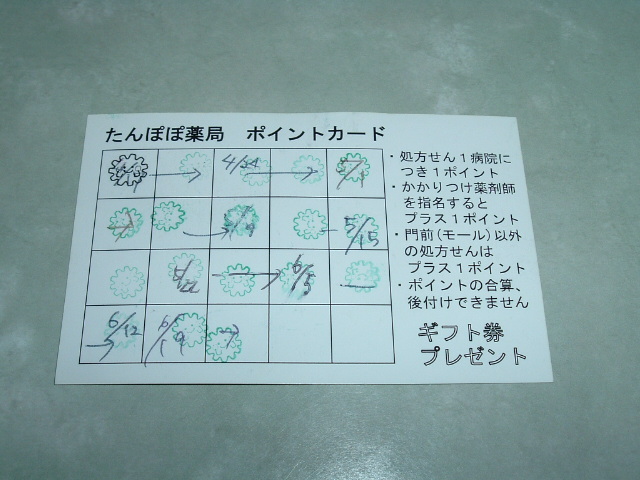 たんぽぽ薬局 ポイントカード
・処方せん1病院に
つき1ポイント
・かかりつけ薬剤師
を指名すると
プラス1ポイント
・門前(モール)以外
の処方せんは
プラス1ポイント
・ポイントの合算、
後付けできません
ギフト券
プレゼント
4/24
5/15
5/22
6/5
6/12
6/19